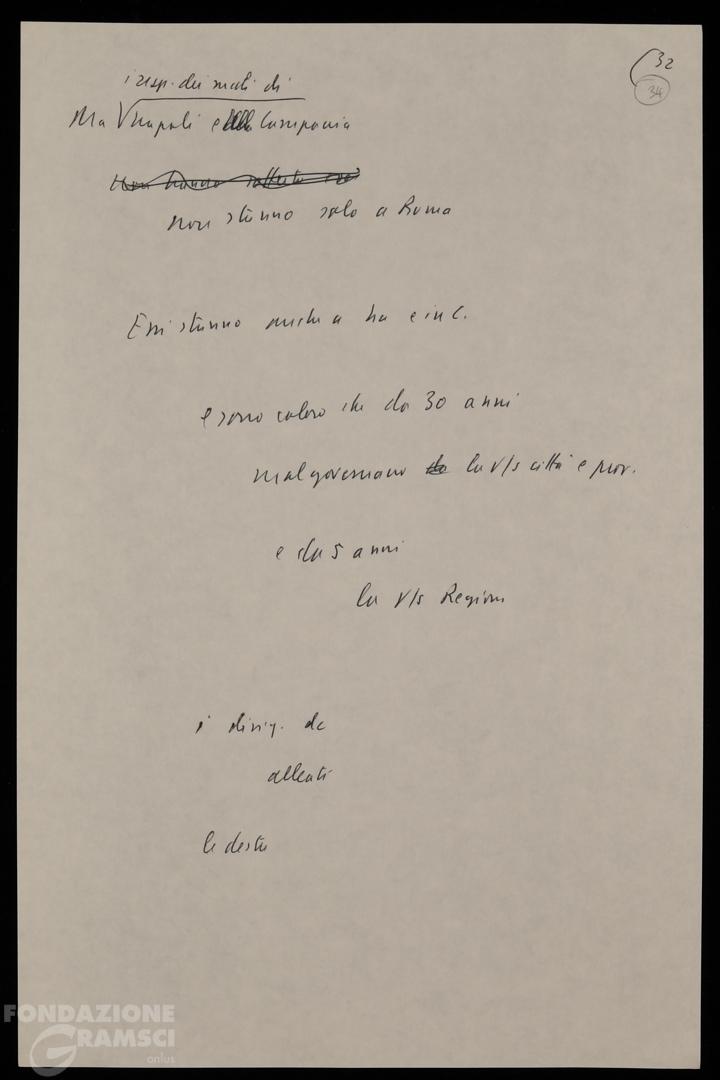 32
34
i resp. dei mali di
Ma Napoli e Campania
non stanno solo a Roma
Essi stanno anche a Na e in C.
e sono coloro che da 30 anni
malgovernano la v/s città e prov.
e da 5 anni
la v/s Regione
i dirig. dc
alleati
le destre
FONDAZIONE
GRAMSCI
onlus